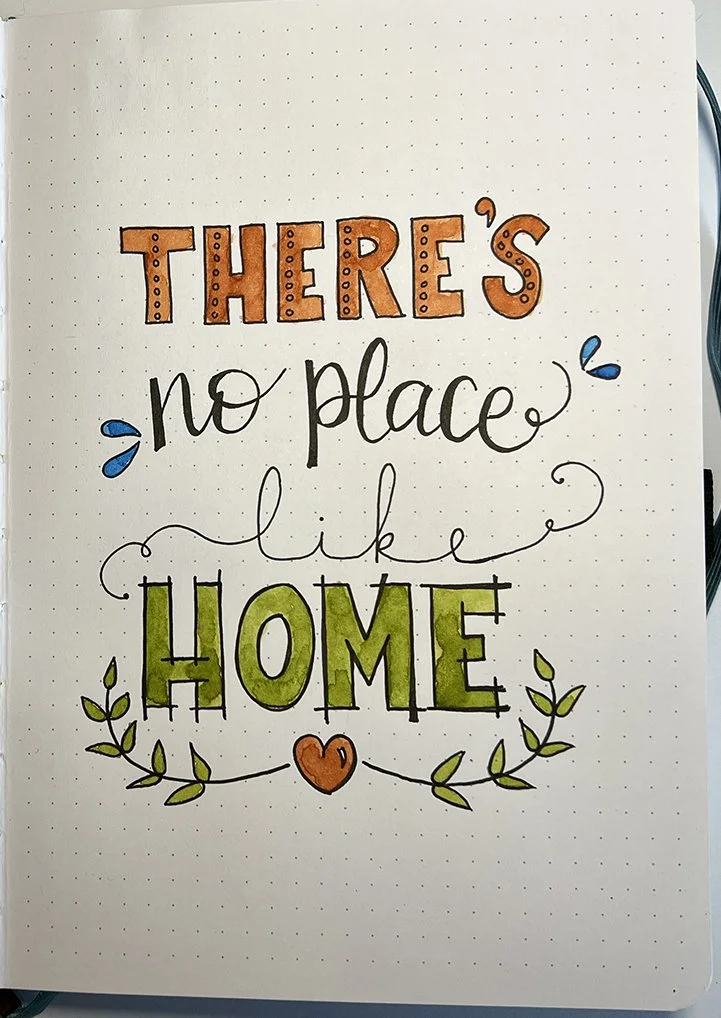 THERE'S
no place
like
HOME